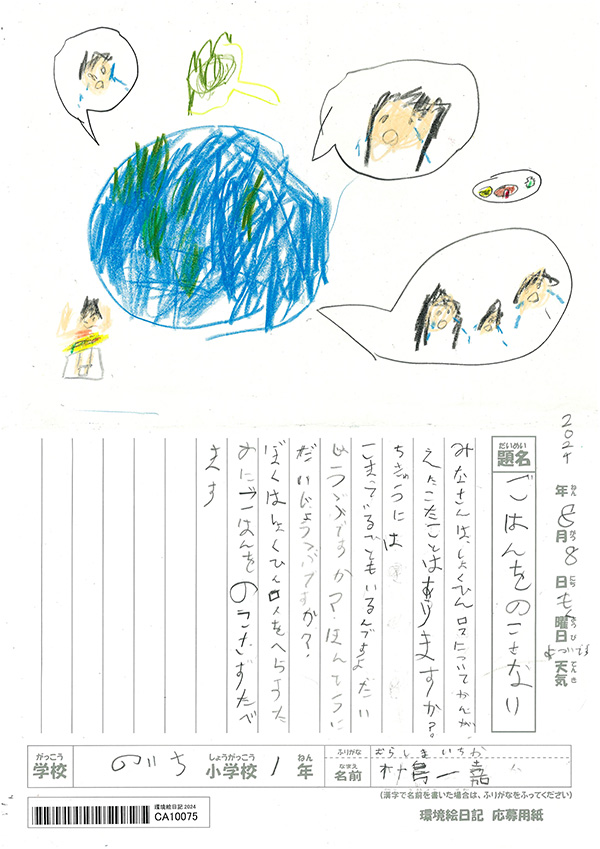 2024年8月8日もく曜日 天気
ねん がつ にち ようび てんき
だいめい
題名
ごはんをのこさない
みなさんは、しょくひんロスについてかんが
えたことはありますか？
ちきゅうには
こまっているこどももいるんですよ だい
じょうぶですか？ほんとうに
だいじょうぶですか？
ぼくはしょくひんロスをへらすた
めにごはんをのこさずたべ
ます
がっこう
学校
のいち
しょうがっこう
小学校
1
ねん
年
ふりがな
むらしまいちか
なまえ
名前
村島一嘉
(漢字で名前を書いた場合は、ふりがなをふってください)
環境絵日記2024
CA10075
環境絵日記 応募用紙